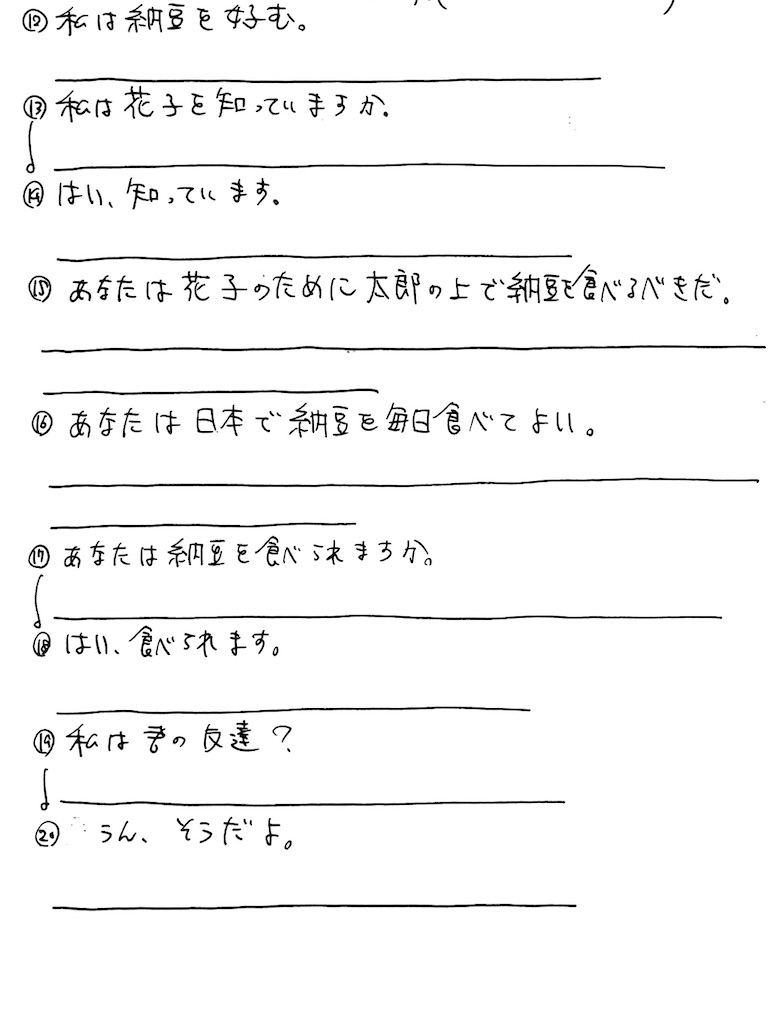 ⑫ 私は納豆を好む。
⑬ 私は花子を知っていますか。
⑭ はい、知っています。
⑮ あなたは花子のために太郎の上で納豆を食べるべきだ。
⑯ あなたは日本で納豆を毎日食べてよい。
⑰ あなたは納豆を食べられますか。
⑱ はい、食べられます。
⑲ 私は君の友達?
⑳ うん、そうだよ。